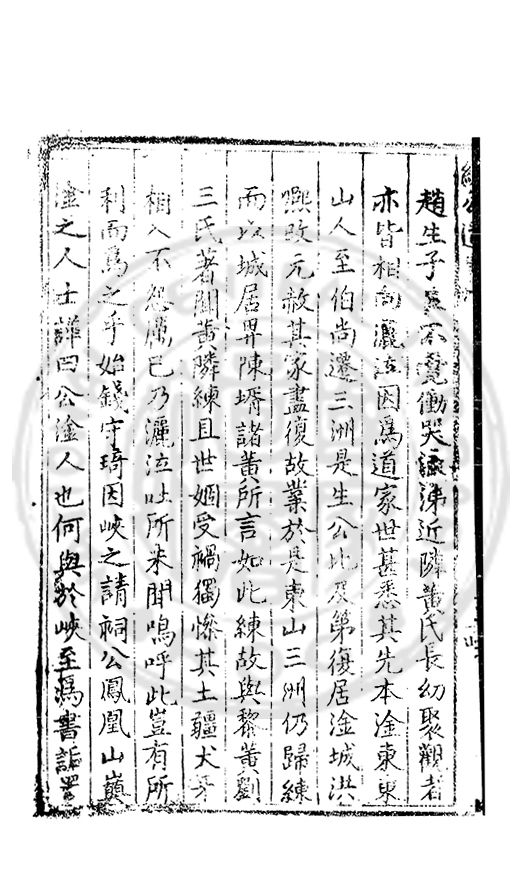 趙生子不覺慟哭流涕近隣黃氏長幼聚觀者
亦皆相向灑泣因爲道家世甚悉其先本淦東東
山人至伯尚遷三洲是生公比及第復居淦城洪
熙改元赦其家盡復故業於是東山三洲仍歸練
而以城居畀陳壻諸黃所言如此練故與黎黃劉
三氏著閥黃隣練且世姻受禍獨慘其土疆犬牙
相入不怨厲已乃灑泣吐所未聞嗚呼此豈有所
利而爲之乎始錢守琦因峽之請祠公鳳凰山巔
淦之人士譁曰公淦人也何與於峽至爲書詬詈